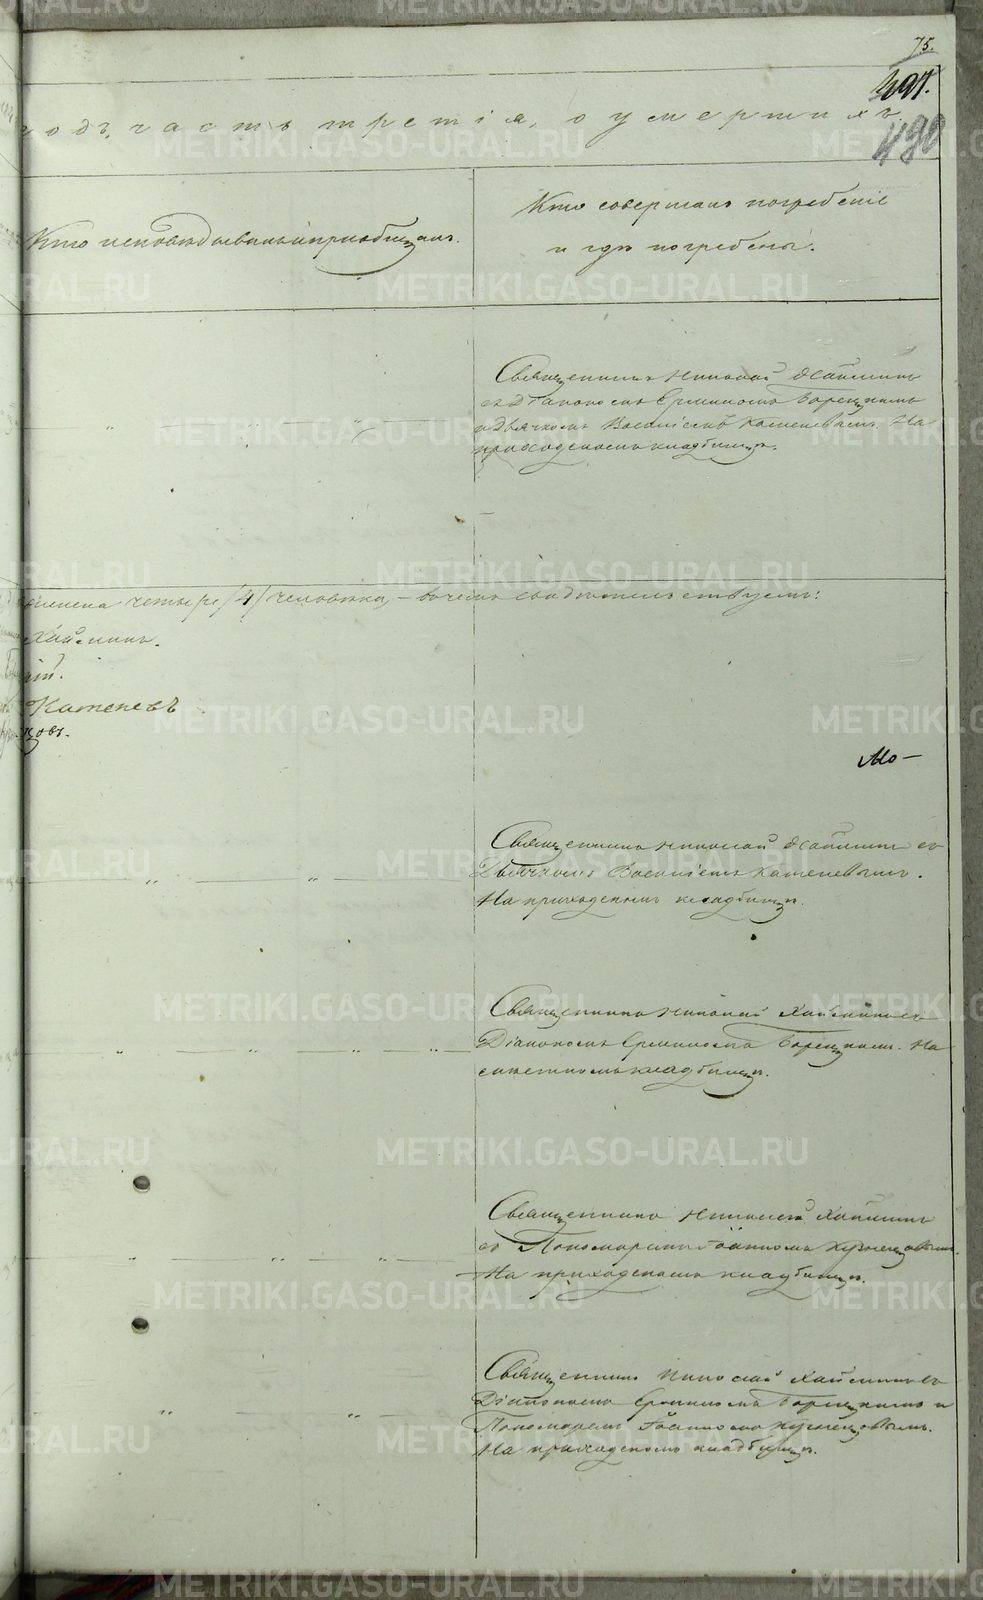 75.
491.
490
годъ, часть третія, о умершихъ.
Кто исповѣдывалъ и пріобщалъ.
Кто совершалъ погребеніе
и гдѣ погребены.
Священникъ Николай Хаймин
съ Діакономъ Ермиломъ Борецкимъ
и Дьячкомъ Василіемъ Катеневымъ. На
приходскомъ кладбищѣ.
четыре /4/ человѣка, – въ чемъ свидѣтельствуемъ:
Хайминъ.
Катеневъ
цовъ.
Мо-
Священникъ Николай Хаймин съ
Дьячкомъ Василіемъ Катеневымъ.
На приходскомъ кладбищѣ.
Священникъ Николай Хайминъ съ
Діакономъ Ермиломъ Борецкимъ. На
кладбищѣ.
Священникъ Николай Хаймин
съ Пономаремъ Іоанномъ Кузнецовымъ.
На приходскомъ кладбищѣ.
Священникъ Николай Хайминъ съ
Діакономъ Ермиломъ Борецкимъ и
Пономаремъ Іоанномъ Кузнецовымъ.
На приходскомъ кладбищѣ.
METRIKI.GASO-URAL.RU